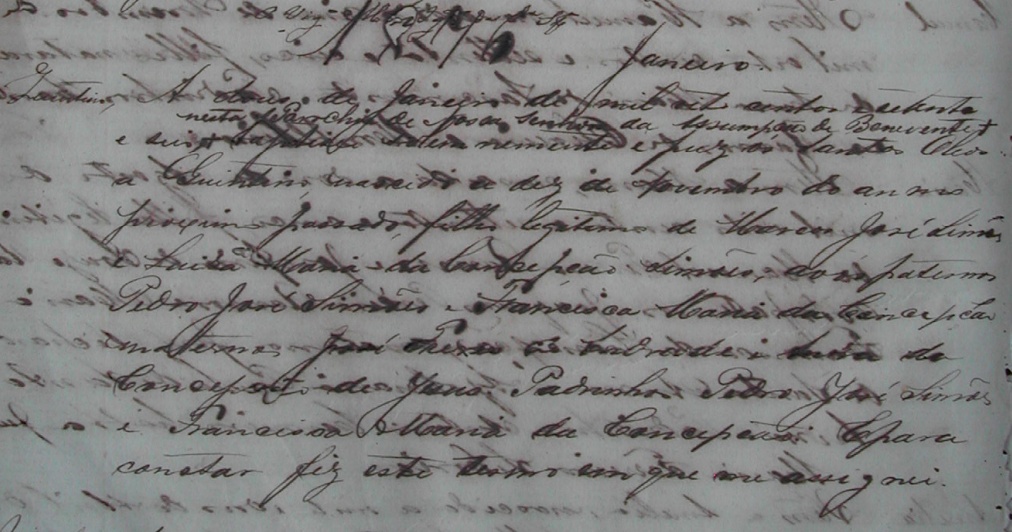 Janeiro.
Quintino A dous de Janeiro de mil oit centos e setenta
nesta Parochia de Nossa Senhora da Assumpção de Benevente
e seis baptisei solemnemente e puz os Santos Oleos
a Quintino nascido a dez de Novembro do anno
proximo passado, filho legitimo de Manoel José Simões
e Luiza Maria da Conceipção Simões, avós paternos
Pedro José Simões e Francisca Maria da Conceipção
maternos José de Andrade e da
Conceipção de Jesus. Padrinhos Pedro José Simões
e Francisca Maria da Conceipção. E para
constar fiz este termo em que me assignei.